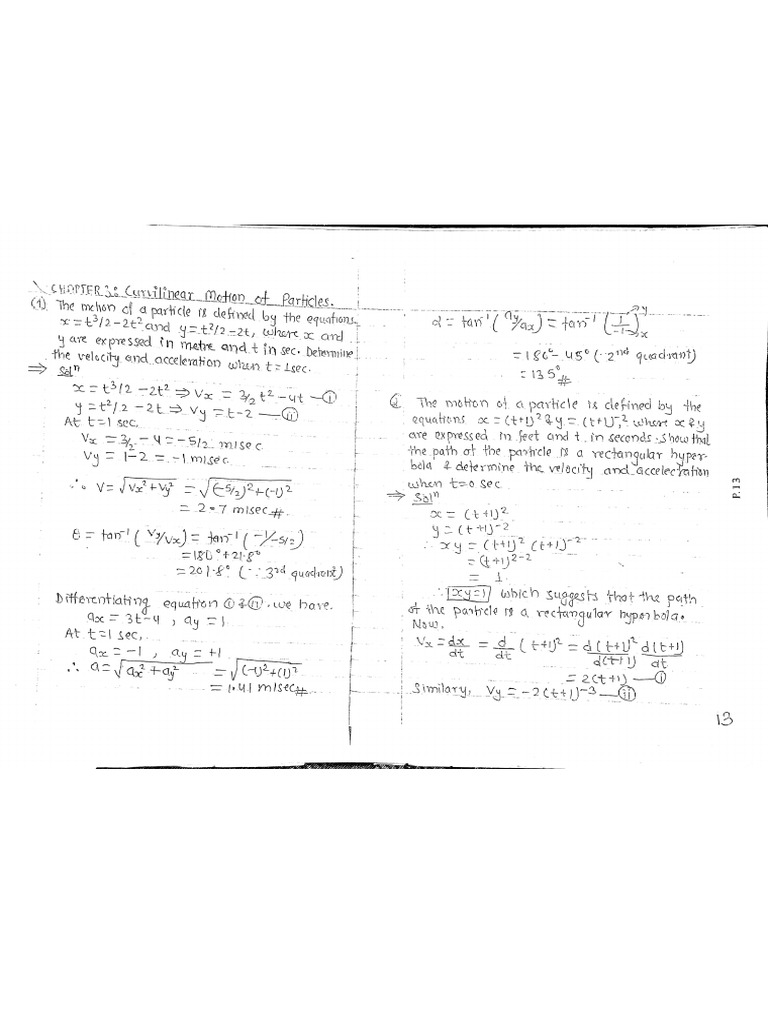 CHAPTER 3: Curvilinear Motion of Particles.
(1) The motion of a particle is defined by the equations
x = t³/2 - 2t² and y = t²/2 - 2t, where x and
y are expressed in metre and t in sec. Determine
the velocity and acceleration when t = 1 sec.
⇒ Solⁿ
x = t³/2 - 2t² ⇒ Vx = 3/2 t² - 4t — (i)
y = t²/2 - 2t ⇒ Vy = t - 2 — (ii)
At t = 1 sec.
Vx = 3/2 - 4 = -5/2 m/sec
Vy = 1 - 2 = -1 m/sec.
∴ V = √(Vx² + Vy²) = √((-5/2)² + (-1)²)
= 2.7 m/sec #.
θ = tan⁻¹ (Vy/Vx) = tan⁻¹ (-1/-5/2)
= 180° + 21.8°
= 201.8° (∵ 3rd quadrant)
Differentiating equation (i) & (ii). we have.
ax = 3t - 4 , ay = 1
At t = 1 sec,
ax = -1 , ay = +1
∴ a = √(ax² + ay²) = √((-1)² + (1)²)
= 1.41 m/sec #
α = tan⁻¹ (ay/ax) = tan⁻¹ (1/-1) → y → x
= 180° - 45° (∵ 2nd quadrant)
= 135° #
2. The motion of a particle is defined by the
equations x = (t+1)² & y = (t+1)⁻² where x & y
are expressed in feet and t. in seconds. Show that
the path of the particle is a rectangular hyper-
bola & determine the velocity and acceleration
when t = 0 sec
⇒ Solⁿ
x = (t+1)²
y = (t+1)⁻²
∴ xy = (t+1)² (t+1)⁻²
= (t+1)²⁻²
= 1
∴ xy = 1 which suggests that the path
of the particle is a rectangular hyperbola.
Now.
Vx = dx/dt = d/dt (t+1)² = d(t+1)²/d(t+1) d(t+1)/dt
= 2(t+1) — (i)
Similary, Vy = -2(t+1)⁻³ — (ii)
P.13
13